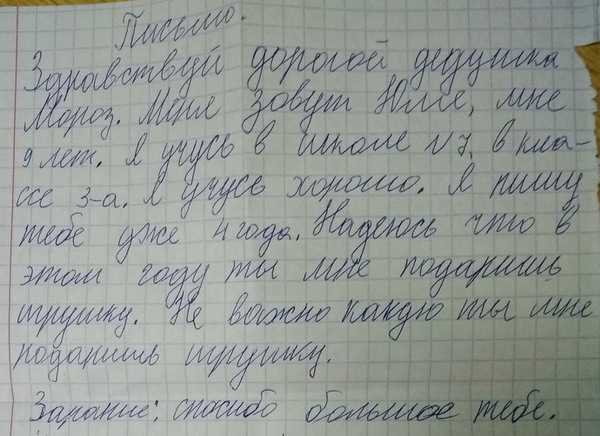 Письмо.
Здравствуй дорогой дедушка
Мороз. Меня зовут Юлие, мне
9 лет. Я учусь в школе №7, в кла-
ссе 3-а. Я учусь хорошо. Я пишу
тебе уже 4 года. Надеюсь что в
этом году ты мне подаришь
игрушку. Не важно какую ты мне
подаришь игрушку.
Зарание: спосибо большое тебе.